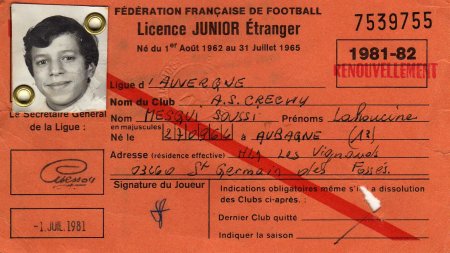 FÉDÉRATION FRANÇAISE DE FOOTBALL
Licence JUNIOR Étranger
Né du 1er Août 1962 au 31 Juillet 1965
7539755
1981-82
RENOUVELLEMENT
Ligue d'AUVERGNE
Nom du Club A.S. CRECHY
Nom MESQUI SOUSSI Prénoms Lahoucine
en majuscules
Né le 270766 à AUBAGNE (13)
Adresse (résidence effective) HLM Les Vignauds
03260 St Germain des Fossés.
Le Secrétaire Général
de la Ligue :
Signature du Joueur
Indications obligatoires même s'il y a dissolution
des Clubs ci-après.
Dernier Club quitté
Indiquer la saison
-1 JUIL 1981